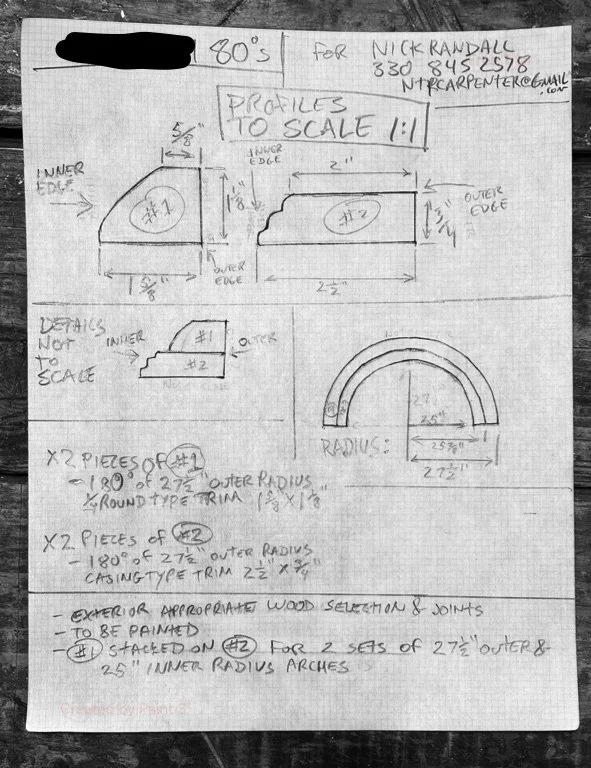 80°s
FOR NICK RANDALL
330 845 2578
NTRCARPENTER@GMAIL
.COM
PROFILES
TO SCALE 1:1
5/8"
INNER
EDGE
#1
1 1/8"
OUTER
EDGE
1 5/8"
INNER
EDGE
2"
#2
OUTER
EDGE
3/4"
2 1/2"
DETAILS
NOT
TO
SCALE
INNER
#1
#2
OUTER
RADIUS:
25"
27 1/2"
X2 PIECES OF #1
- 180° of 27 1/2" OUTER RADIUS
1/4 ROUND TYPE TRIM 1 5/8 X 1 1/8"
X2 PIECES of #2
- 180° of 27 1/2" OUTER RADIUS
CASING TYPE TRIM 2 1/2" X 3/4"
- EXTERIOR APPROPRIATE WOOD SELECTION & JOINTS
- TO BE PAINTED
- #1 STACKED ON #2 FOR 2 SETS OF 27 1/2" OUTER &
25" INNER RADIUS ARCHES